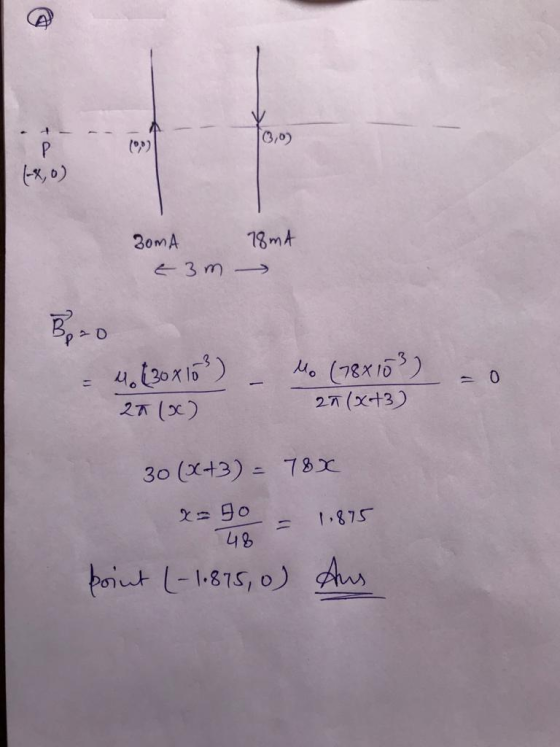 A
(0,0) (3,0)
P
(-x, 0)
30mA 78mA
← 3 m →
B⃗p = 0
= μ₀(30×10⁻³) / 2π(x) - μ₀(78×10⁻³) / 2π(x+3) = 0
30(x+3) = 78x
x = 90/48 = 1.875
point (-1.875, 0) Ans